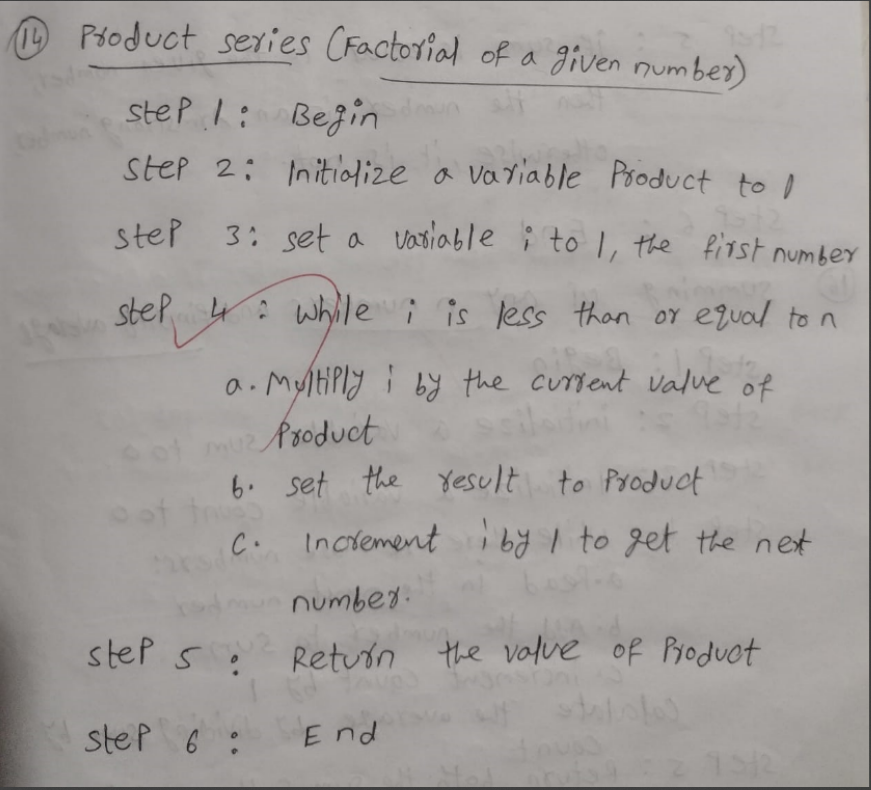 14 Product series (Factorial of a given number)
Step 1 : Begin
Step 2 : Initialize a variable Product to 1
Step 3 : set a variable i to 1, the first number
Step 4 : while i is less than or equal to n
a. Multiply i by the current value of
Product
b. set the result to Product
c. Increment i by 1 to get the next
number.
Step 5 : Return the value of Product
Step 6 : End